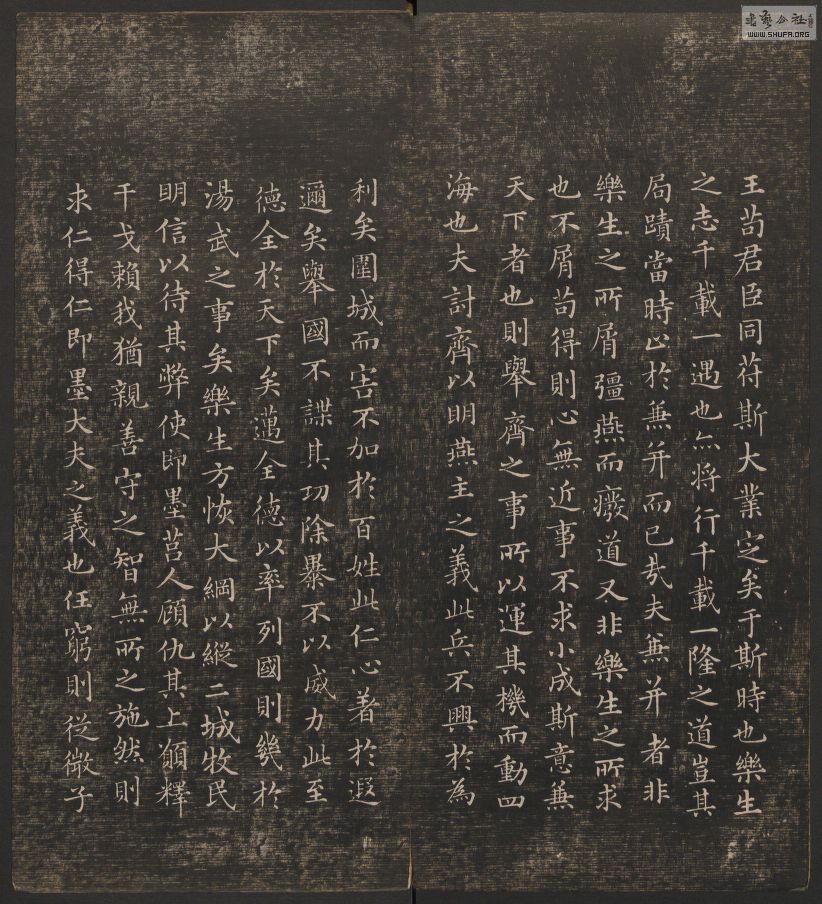 王苟君臣同苻斯大業定矣于斯時也樂生
之志千載一遇也亦将行千載一隆之道豈其
局蹟當時止於蒹并而已哉夫蒹并者非
樂生之所屑彊燕而癈道又非樂生之所求
也不屑苟得則心無近事不求小成斯意蒹
天下者也則舉齊之事所以運其機而動四
海也夫討齊以明燕主之義此兵不興於為
利矣圍城而害不加於百姓此仁心著於遐
邇矣舉國不謀其功除暴不以威力此至
德全於天下矣邁全德以率列國則幾於
湯武之事矣樂生方恢大綱以縱二城牧民
明信以待其弊使即墨莒人顧仇其上願釋
干戈賴我猶親善守之智無所之施然則
求仁得仁即墨大夫之義也任窮則従微子
書藝公社
WWW.SHUFA.ORG